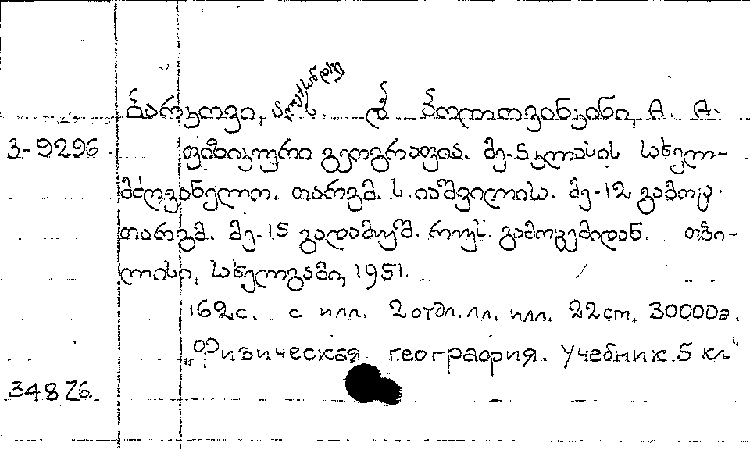 ალექსანდრე
ბარკოვი, ა. ს. და პოლოვინკინი, А. А.
3-9296 ფიზიკური გეოგრაფია. მე-5 კლასის სახელ-
მძღვანელო. თარგმ. ს. იაშვილისა. მე-12 გამოც.
თარგმ. მე-15 გადამუშ. რუს. გამოცემიდან. თბი-
ლისი, სახელგამი, 1951.
162с. с илл. 2 отд.лл. илл. 22cm. 30000э.
„Физическая география. Учебник. 5 кл"
34876.